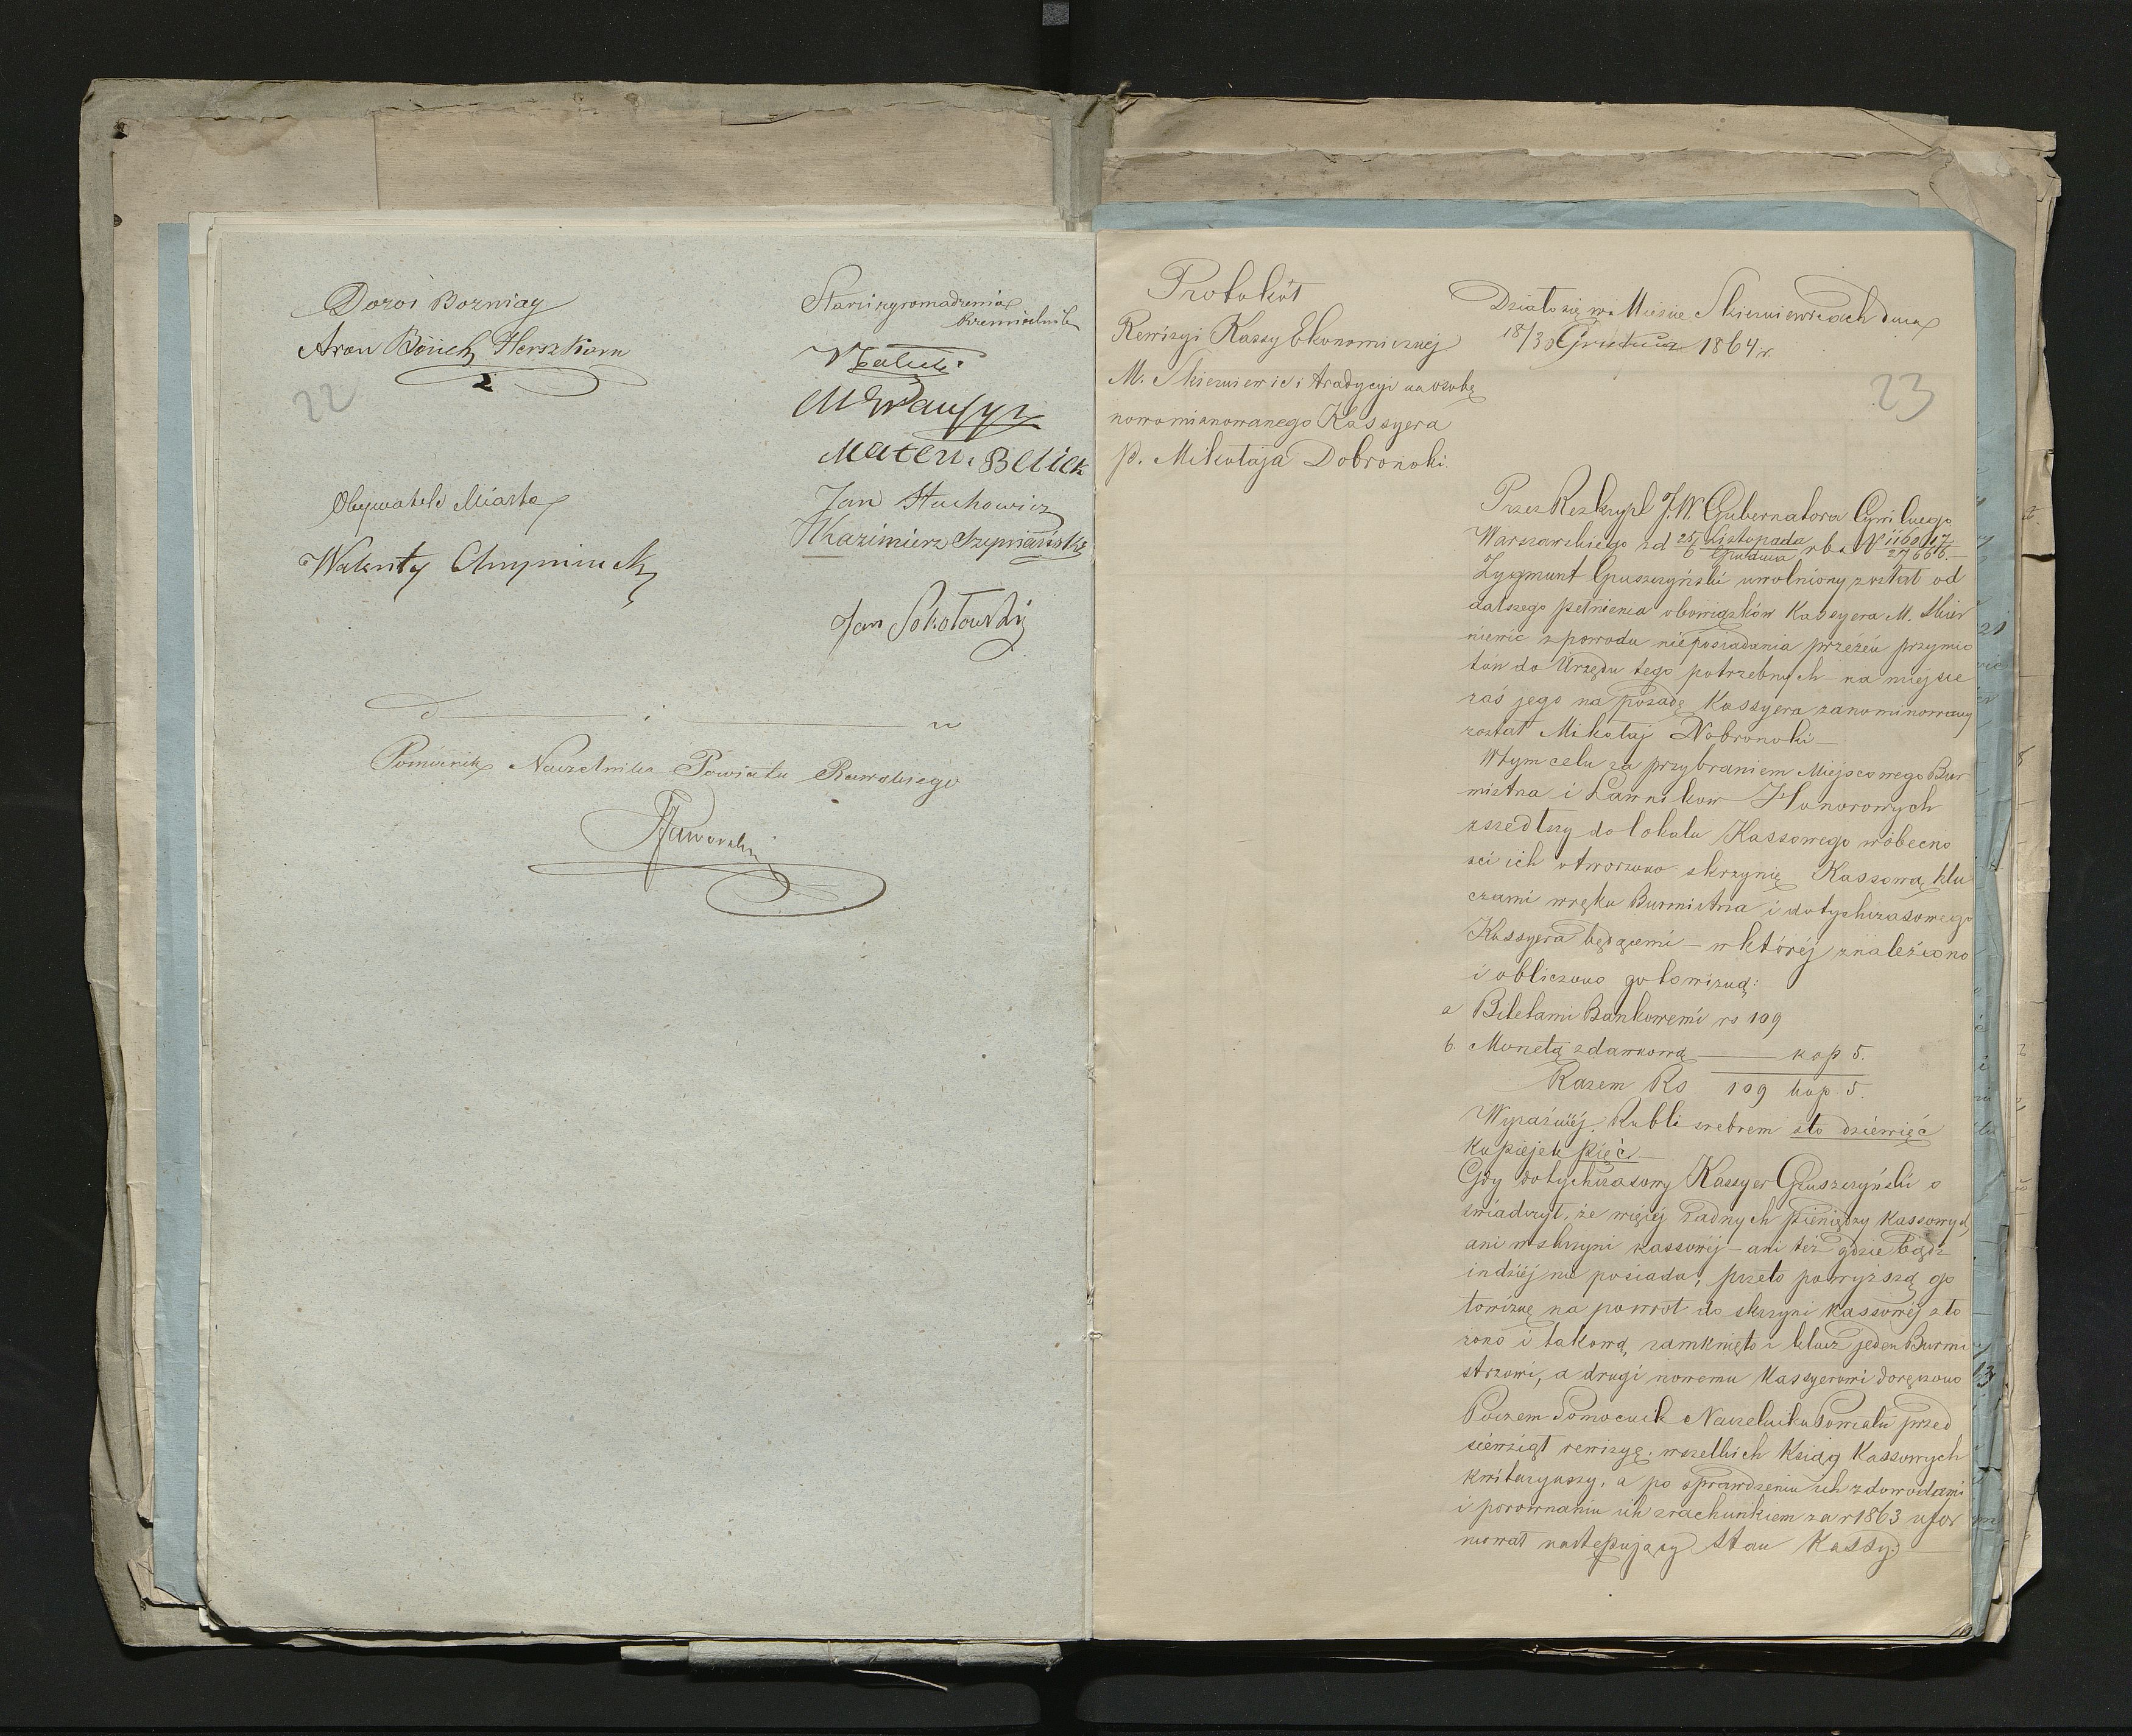 Dozor Bozniczy
Aron Boruch Herszkorn
22
Starsi zgromadzenia
Rzemieślnik
Maten Belick
Jan Stuchowicz
Kazimierz Szymański
Obywatele Miasta
Walenty Chrymiński
Jan Sokołowski
Pomocnik Naczelnika Powiatu Rawskiego
Jaworski
Protokół
Rewizyi Kassy Ekonomicznej
M. Skierniewic i tradycyi na osobę
nowomianowanego Kassyera
p. Mikołaja Dobronoki.
Działo się w Mieście Skierniewicach dnia
18/30 Grudnia 1864 r.
23
Przez Reskrypt J.W. Gubernatora Cywilnego
Warszawskiego z d 25/6 Listopada/Grudnia rb N 116017/27666
Zygmunt Gruszczyński uwolniony został od
dalszego pełnienia obowiązków Kassyera M. Skier
niewic z powodu nieposiadania przezeń przymio
tów do Urzędu tego potrzebnych – na miejsce
zaś jego na posadę Kassyera zanominowany
został Mikołaj Dobronoki –
W tym celu za przybraniem Miejscowego Bur
mistrza i Ławników Honorowych
zszedłszy do lokalu Kassowego w obecno
ści ich otworzono skrzynię Kassową, klu
czami w ręku Burmistrza i dotychczasowego
Kassyera będącemi – w której znaleziono
i obliczono gotowizną:
a Biletami Bankowemi rs 109
b. Monetą zdawkową — kop 5.
Razem Rs 109 kop 5.
Wyraźniej, Rubli srebrem sto dziewięć
kopiejek pięć –
Gdy dotychczasowy Kassyer Gruszczyński o
świadczył, że więcej żadnych pieniędzy kassowych,
ani w skrzyni kassowéj – ani też gdzie bądz
indziéj nie posiada, przeto powyższą go
towiznę na powrot do skrzyni kassowéj zło
żono i takową zamknięto i klucz jeden Burmi
strzowi, a drugi nowemu Kassyerowi doręczono
Poczem Pomocnik Naczelnika Powiatu przed
siewziął rewizyę, wszelkich Ksiąg Kassowych
kwitaryuszy, a po sprawdzeniu ich z dowodami
i porównaniu ich z rachunkiem za r 1863 ufor
mował następujący Stan Kassy.